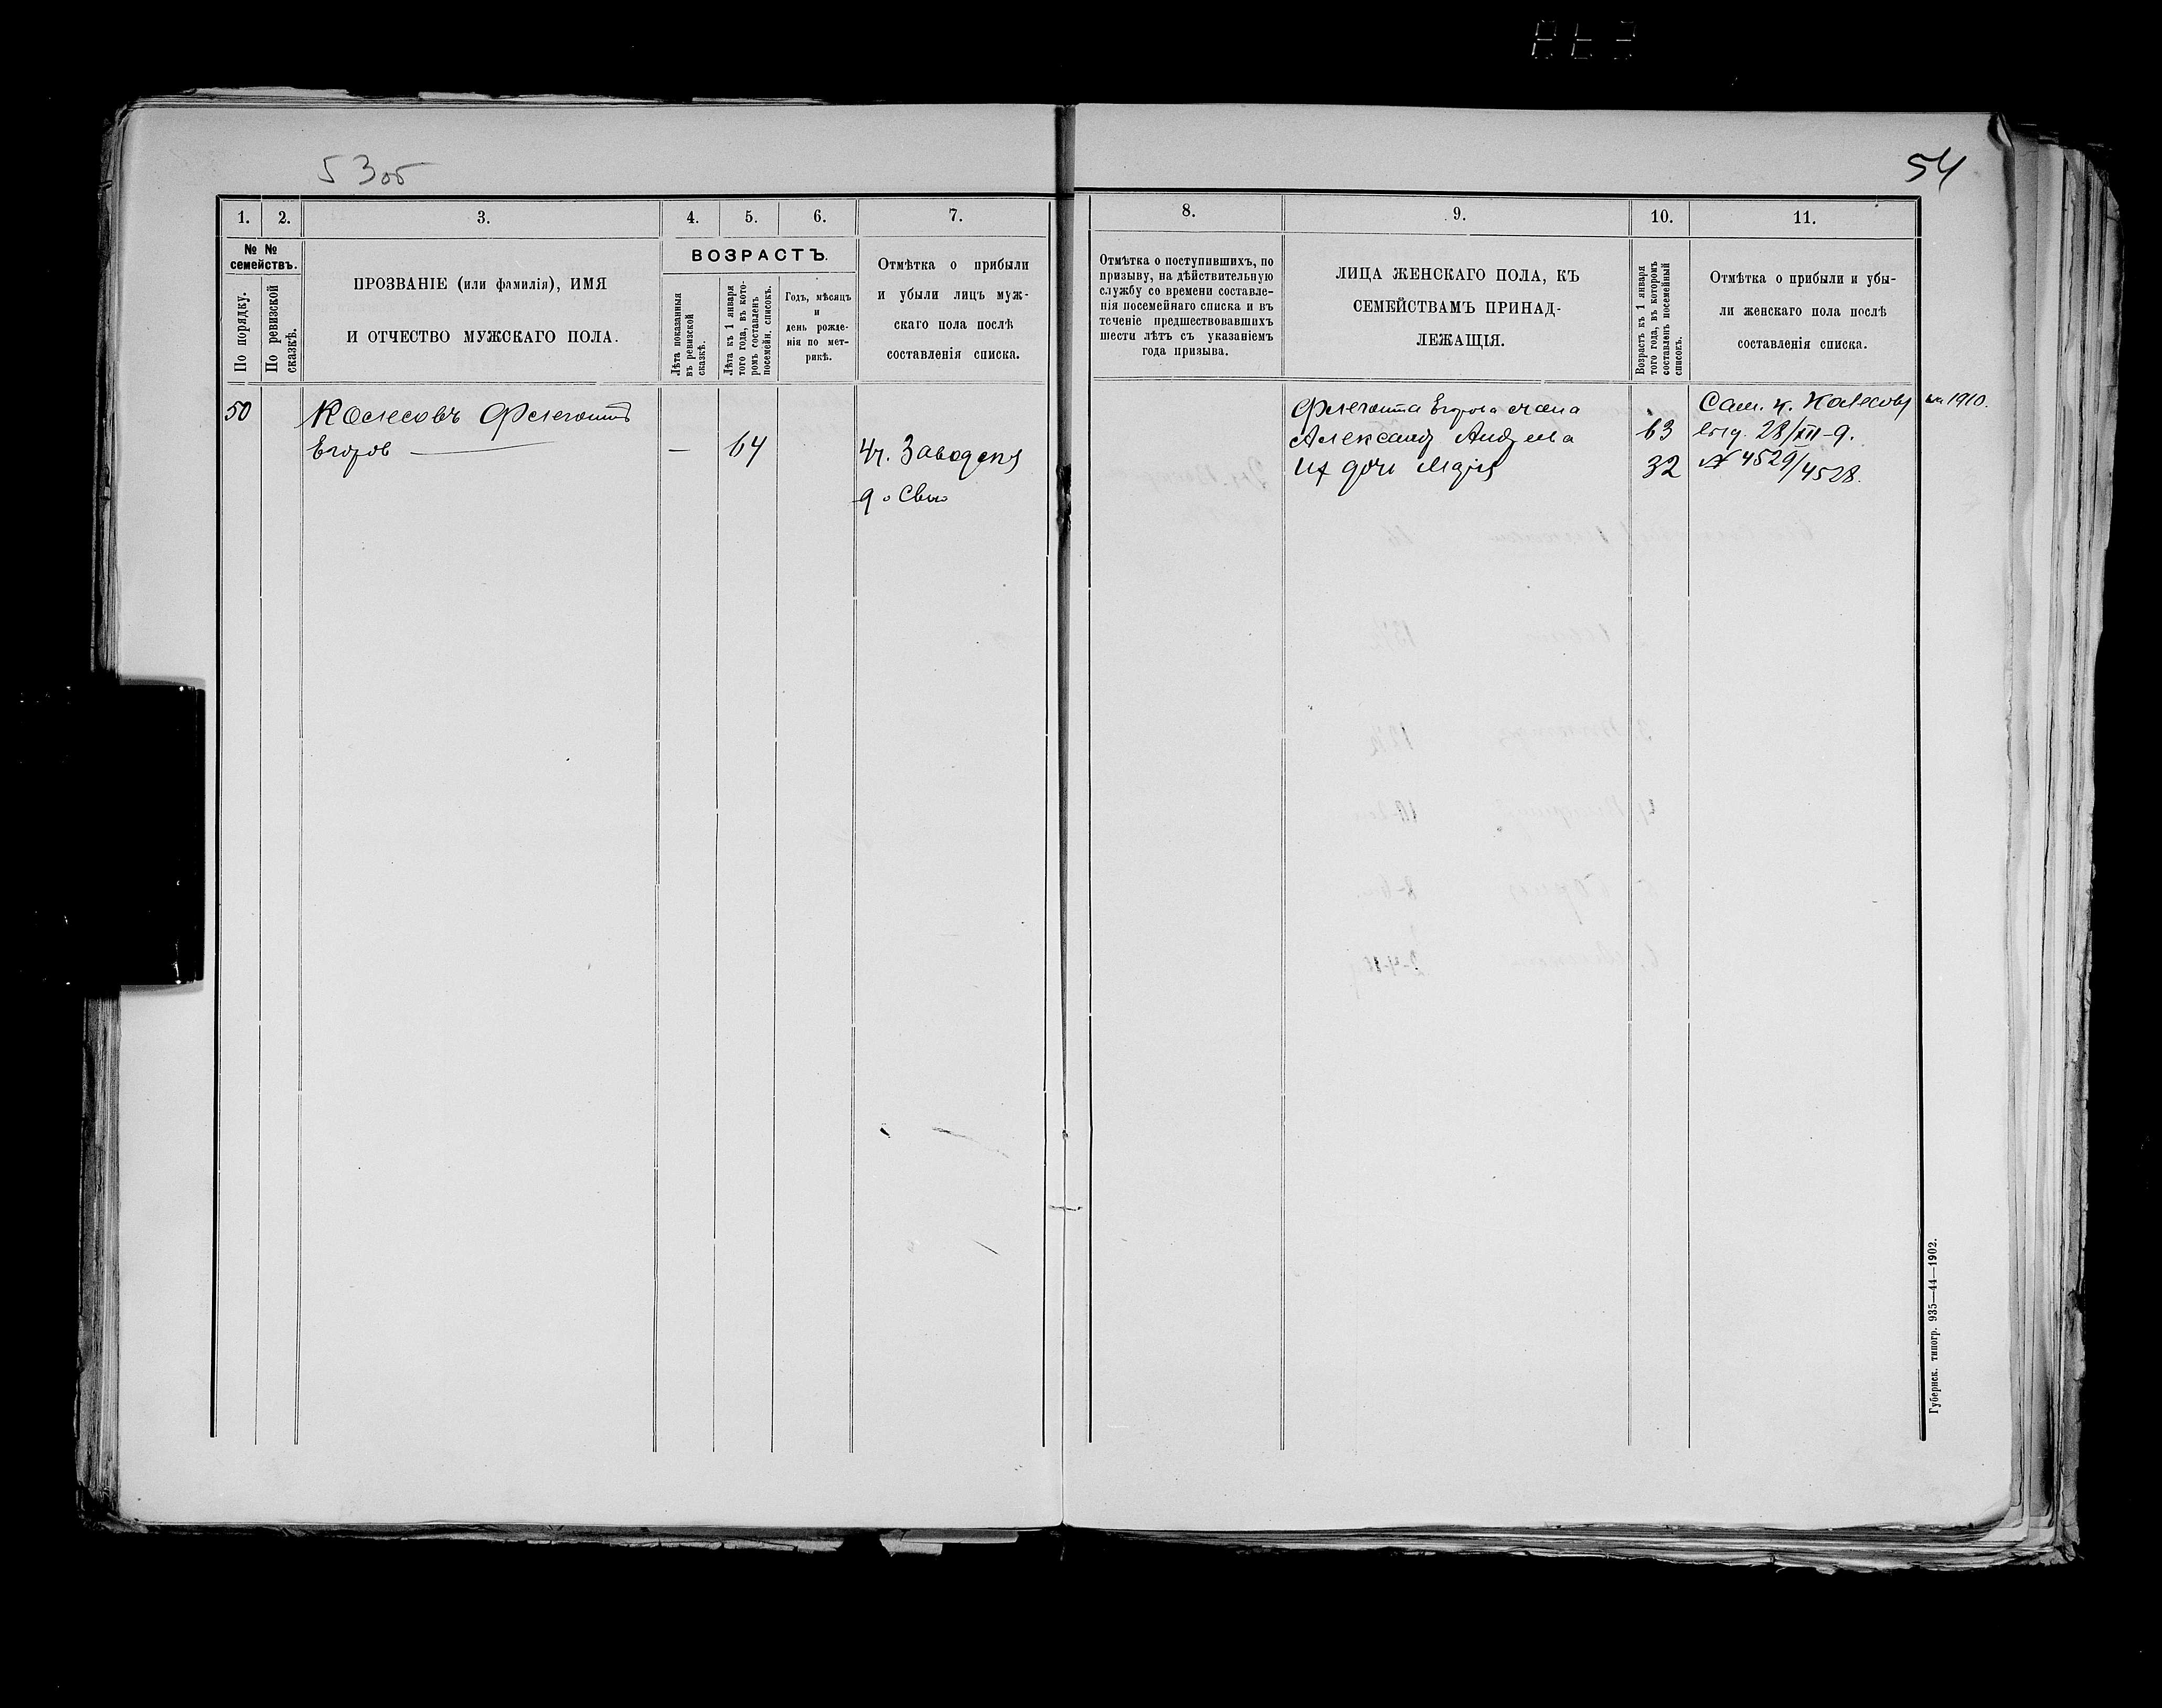 53об
1. 2. 3. 4. 5. 6. 7.
№ № семействъ.
По порядку.
По ревизской сказкѣ.
ПРОЗВАНІЕ (или фамилія), ИМЯ
И ОТЧЕСТВО МУЖСКАГО ПОЛА.
ВОЗРАСТЪ.
Лѣта показанныя
въ ревизской
сказкѣ.
Лѣта къ 1 января
того года, въ кото-
ромъ составленъ
посемейн. списокъ.
Годъ, мѣсяцъ
и
день рожде-
нія по мет-
рикѣ.
Отмѣтка о прибыли
и убыли лицъ муж-
скаго пола послѣ
составленія списка.
50 Колесовъ Флегонтъ
Егоров — — 64
54
8. 9. 10. 11.
Отмѣтка о поступившихъ, по
призыву, на дѣйствительную
службу со времени составле-
нія посемейнаго списка и въ
теченіе предшествовавшихъ
шести лѣтъ съ указаніемъ
года призыва.
ЛИЦА ЖЕНСКАГО ПОЛА, КЪ
СЕМЕЙСТВАМЪ ПРИНАД-
ЛЕЖАЩІЯ.
Возрастъ къ 1 января
того года, въ которомъ
составленъ посемейный
списокъ.
Отмѣтка о прибыли и убы-
ли женскаго пола послѣ
составленія списка.
Флегонта Егорова жена
Александ Андреева 63 28/XII-9.
Их дочь Марія 32 № 4529/4528.
1910.
Губернск. типогр. 935—44—1902.